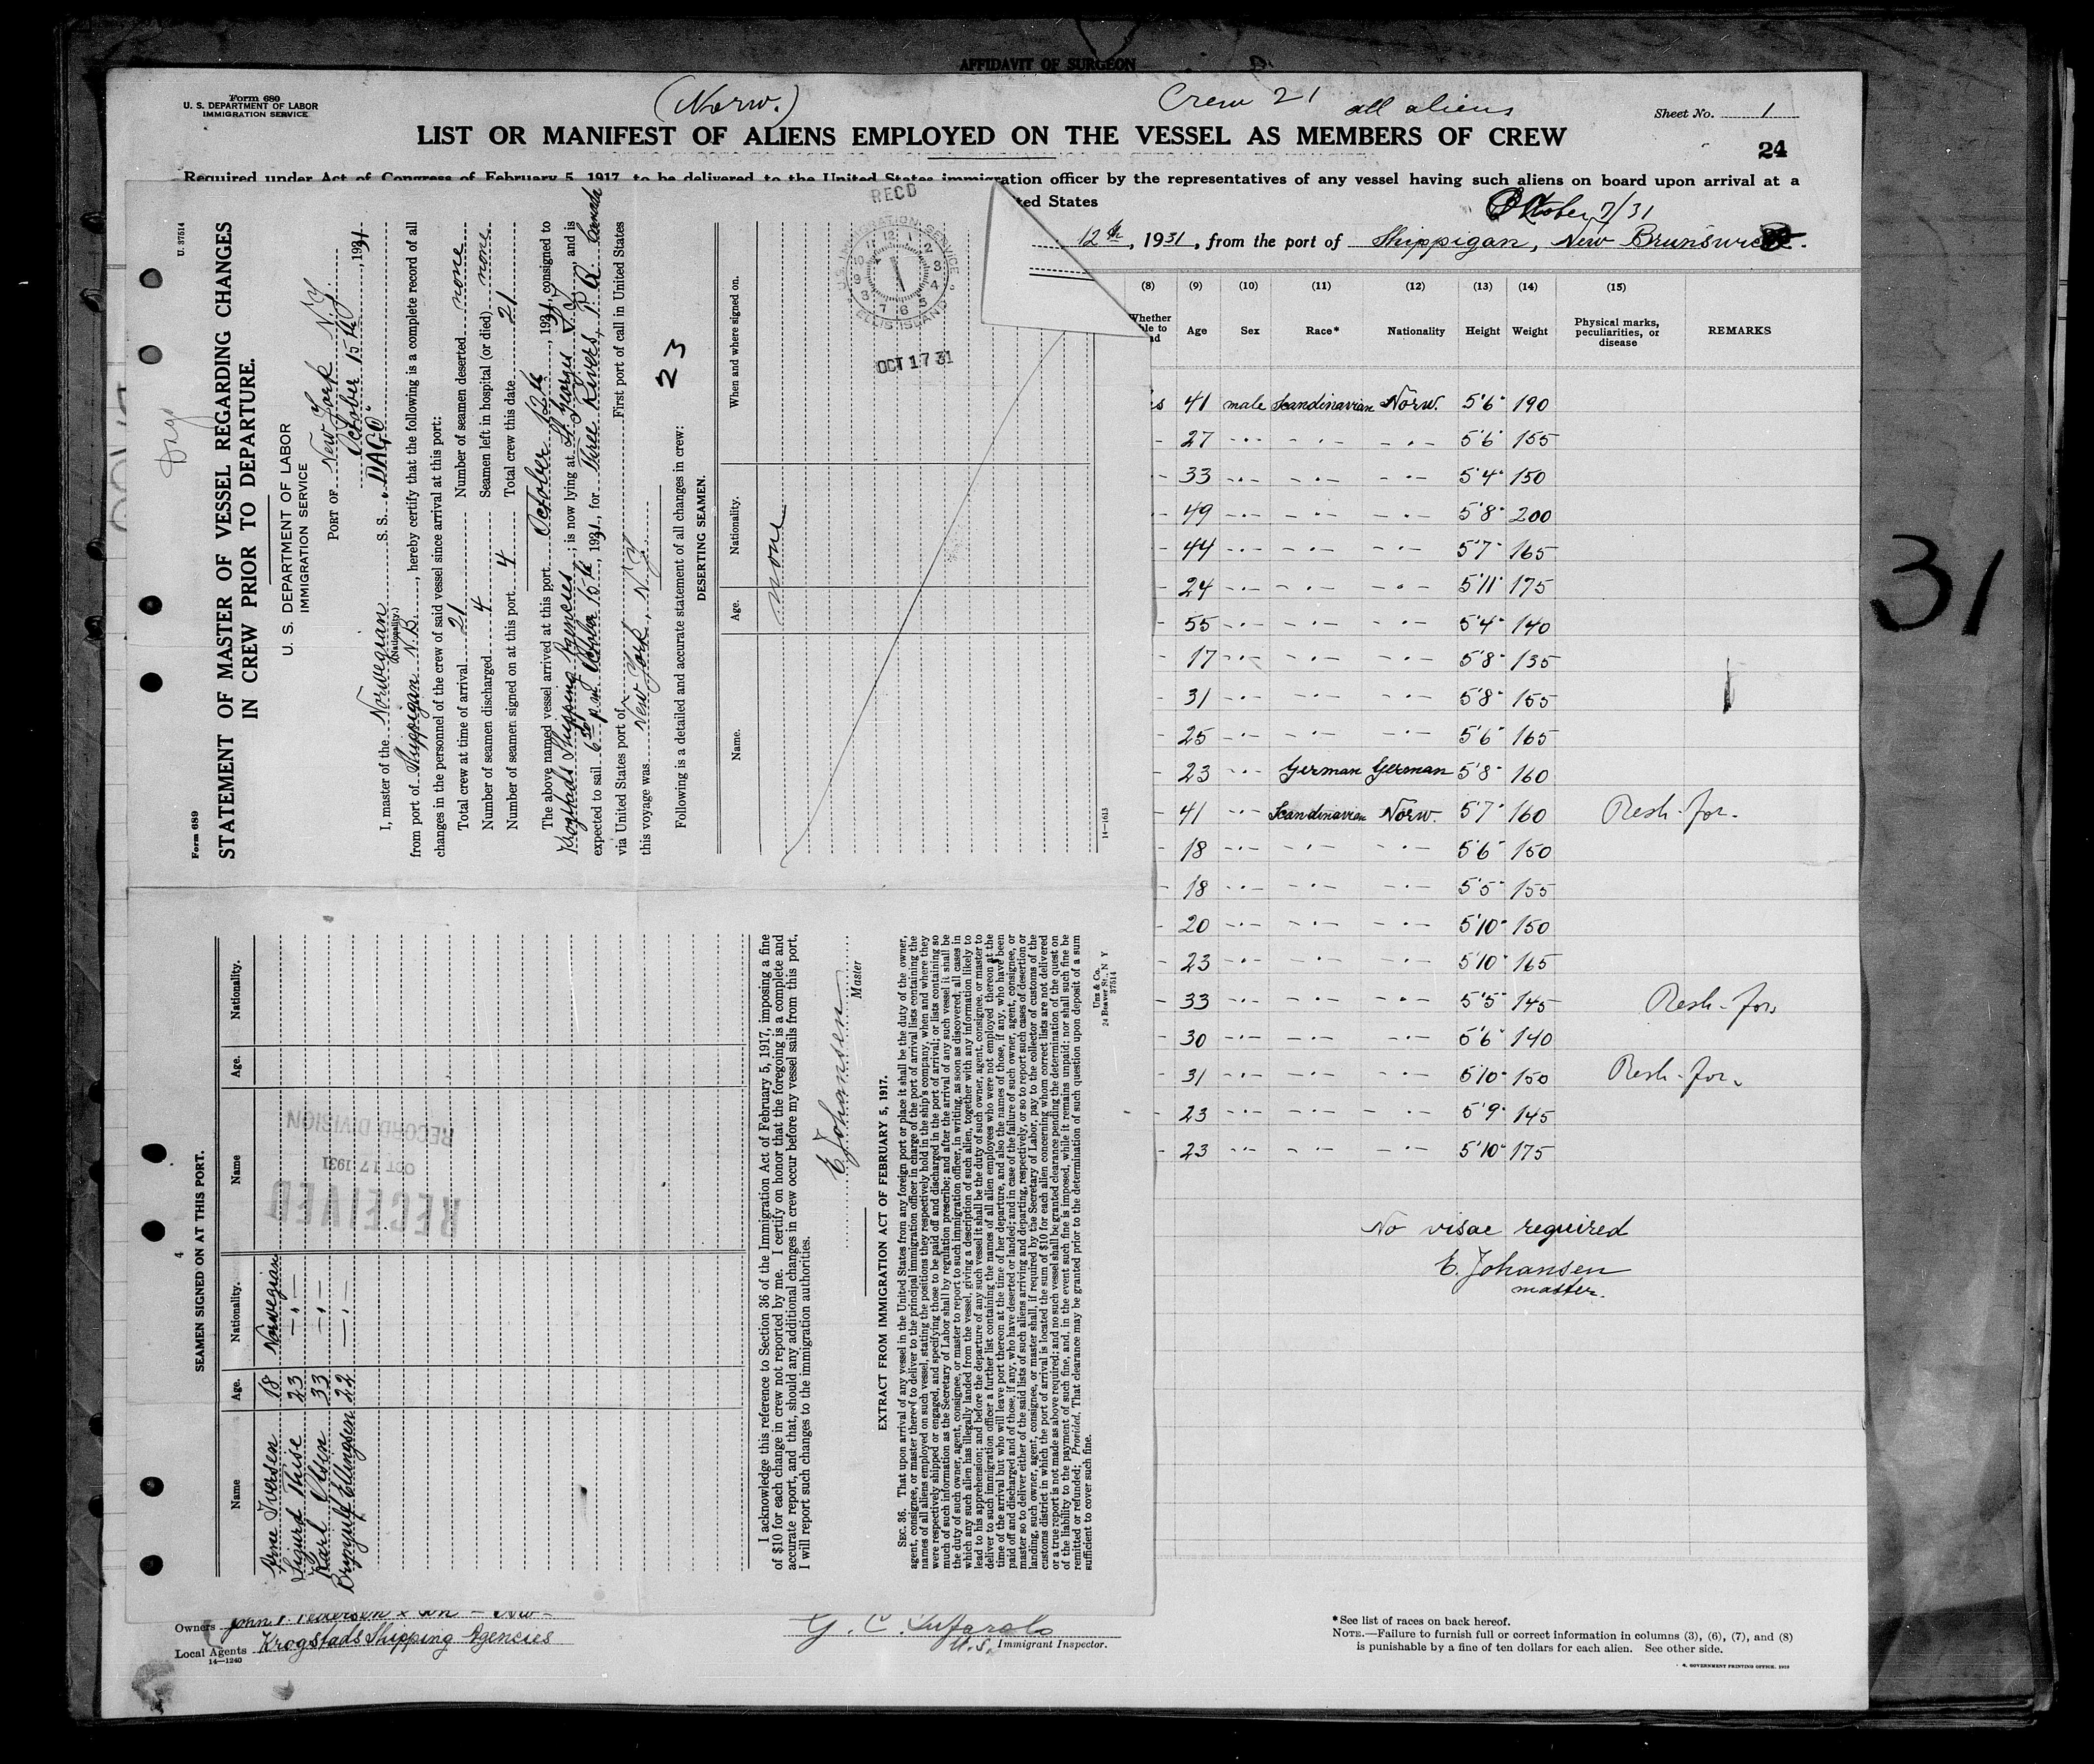 AFFIDAVIT OF SURGEON
Form 680
U. S. DEPARTMENT OF LABOR
IMMIGRATION SERVICE
(Norw.)
Crew 21 all aliens
Sheet No. 1
LIST OR MANIFEST OF ALIENS EMPLOYED ON THE VESSEL AS MEMBERS OF CREW
24
Required under Act of Congress of February 5, 1917, to be delivered to the United States immigration officer by the representatives of any vessel having such aliens on board upon arrival at a
ted States
October 7/31
12th, 1931, from the port of Shippigan, New Brunswick.
(8) (9) (10) (11) (12) (13) (14) (15)
Whether
Age Sex Race* Nationality Height Weight Physical marks, peculiarities, or disease REMARKS
41 male Scandinavian Norw. 5'6" 190
- 27 -·- -·- -·- 5'6" 155
- 33 -·- -·- -·- 5'4" 150
- 49 -·- -·- -·- 5'8" 200
- 44 -·- -·- -·- 5'7" 165
- 24 -·- -·- -·- 5'11" 175
- 55 -·- -·- -·- 5'4" 140
- 17 -·- -·- -·- 5'8" 135
- 31 -·- -·- -·- 5'8" 155
- 25 -·- -·- -·- 5'6" 165
- 23 -·- German German 5'8" 160
- 41 -·- Scandinavian Norw. 5'7" 160 Resh-for.
- 18 -·- -·- -·- 5'6" 150
- 18 -·- -·- -·- 5'5" 155
- 20 -·- -·- -·- 5'10" 150
- 23 -·- -·- -·- 5'10" 165
- 33 -·- -·- -·- 5'5" 145 Resh-for.
- 30 -·- -·- -·- 5'6" 140
- 31 -·- -·- -·- 5'10" 150 Resh-for.
- 23 -·- -·- -·- 5'9" 145
- 23 -·- -·- -·- 5'10" 175
No visae required
E. Johansen
master.
31
*See list of races on back hereof.
NOTE.—Failure to furnish full or correct information in columns (3), (6), (7), and (8)
is punishable by a fine of ten dollars for each alien. See other side.
GOVERNMENT PRINTING OFFICE
Owners John P. Pedersen & Søn
Local Agents Krogstads Shipping Agencies
14—1240
U.S. Immigrant Inspector.
Form 689
U. 37514
STATEMENT OF MASTER OF VESSEL REGARDING CHANGES
IN CREW PRIOR TO DEPARTURE.
U. S. DEPARTMENT OF LABOR
IMMIGRATION SERVICE
PORT OF New York N.Y.
October 15th, 1931
I, master of the Norwegian S. S. "DAGO"
(Nationality)
from port of Shippigan N.B., hereby certify that the following is a complete record of all
changes in the personnel of the crew of said vessel since arrival at this port:
Total crew at time of arrival 21 Number of seamen deserted none
Number of seamen discharged 4 Seamen left in hospital (or died) none
Number of seamen signed on at this port 4 Total crew this date 21
The above named vessel arrived at this port October 12th, 1931, consigned to
Krogstads Shipping Agencies; is now lying at St. Georges, and is
expected to sail 6 30 p.m. October 15th, 1931, for Three Rivers, P.Q. Canada
via United States port of First port of call in United States
this voyage was New York, N.Y.
23
Following is a detailed and accurate statement of all changes in crew:
DESERTING SEAMEN.
Name. Age. Nationality. When and where signed on.
none
14—1613
RECD
U.S. IMMIGRATION SERVICE
ELLIS ISLAND
OCT 17 31
4
SEAMEN SIGNED ON AT THIS PORT.
Name Age. Nationality. Name Age. Nationality.
Arne Iversen 18 Norwegian
Sigurd Thise 23 -·-
Karl Olsen 33 -·-
Brynjulf Ellingsen 22 -·-
RECEIVED
OCT 17 1931
RECORD DIVISION
I acknowledge this reference to Section 36 of the Immigration Act of February 5, 1917, imposing a fine
of $10 for each change in crew not reported by me. I certify on honor that the foregoing is a complete and
accurate report, and that, should any additional changes in crew occur before my vessel sails from this port,
I will report such changes to the immigration authorities.
E Johansen
Master
EXTRACT FROM IMMIGRATION ACT OF FEBRUARY 5, 1917.
SEC. 36. That upon arrival of any vessel in the United States from any foreign port or place it shall be the duty of the owner,
agent, consignee, or master thereof to deliver to the principal immigration officer in charge of the port of arrival lists containing the
names of all aliens employed on such vessel, stating the positions they respectively hold in the ship's company, when and where they
were respectively shipped or engaged, and specifying those to be paid off and discharged in the port of arrival; or lists containing so
much of such information as the Secretary of Labor shall by regulation prescribe; and after the arrival of any such vessel it shall be
the duty of such owner, agent, consignee, or master to report to such immigration officer, in writing, as soon as discovered, all cases in
which any such alien has illegally landed from the vessel, giving a description of such alien, together with any information likely to
lead to his apprehension; and before the departure of any such vessel it shall be the duty of such owner, agent, consignee, or master to
deliver to such immigration officer a further list containing the names of all alien employees who were not employed thereon at the
time of the arrival but who will leave port thereon at the time of her departure, and also the names of those, if any, who have been
paid off and discharged and of those, if any, who have deserted or landed; and in case of the failure of such owner, agent, consignee, or
master so to deliver either of the said lists of such aliens arriving and departing, respectively, or so to report such cases of desertion or
landing, such owner, agent, consignee, or master shall, if required by the Secretary of Labor, pay to the collector of customs of the
customs district in which the port of arrival is located the sum of $10 for each alien concerning whom correct lists are not delivered
or a true report is not made as above required; and no such vessel shall be granted clearance pending the determination of the quest on
of the liability to the payment of such fine, and, in the event such fine is imposed, while it remains unpaid; nor shall such fine be
remitted or refunded; Provided, That clearance may be granted prior to the determination of such question upon deposit of a sum
sufficient to cover such fine.
Unz & Co.
24 Beaver St., N Y
37514